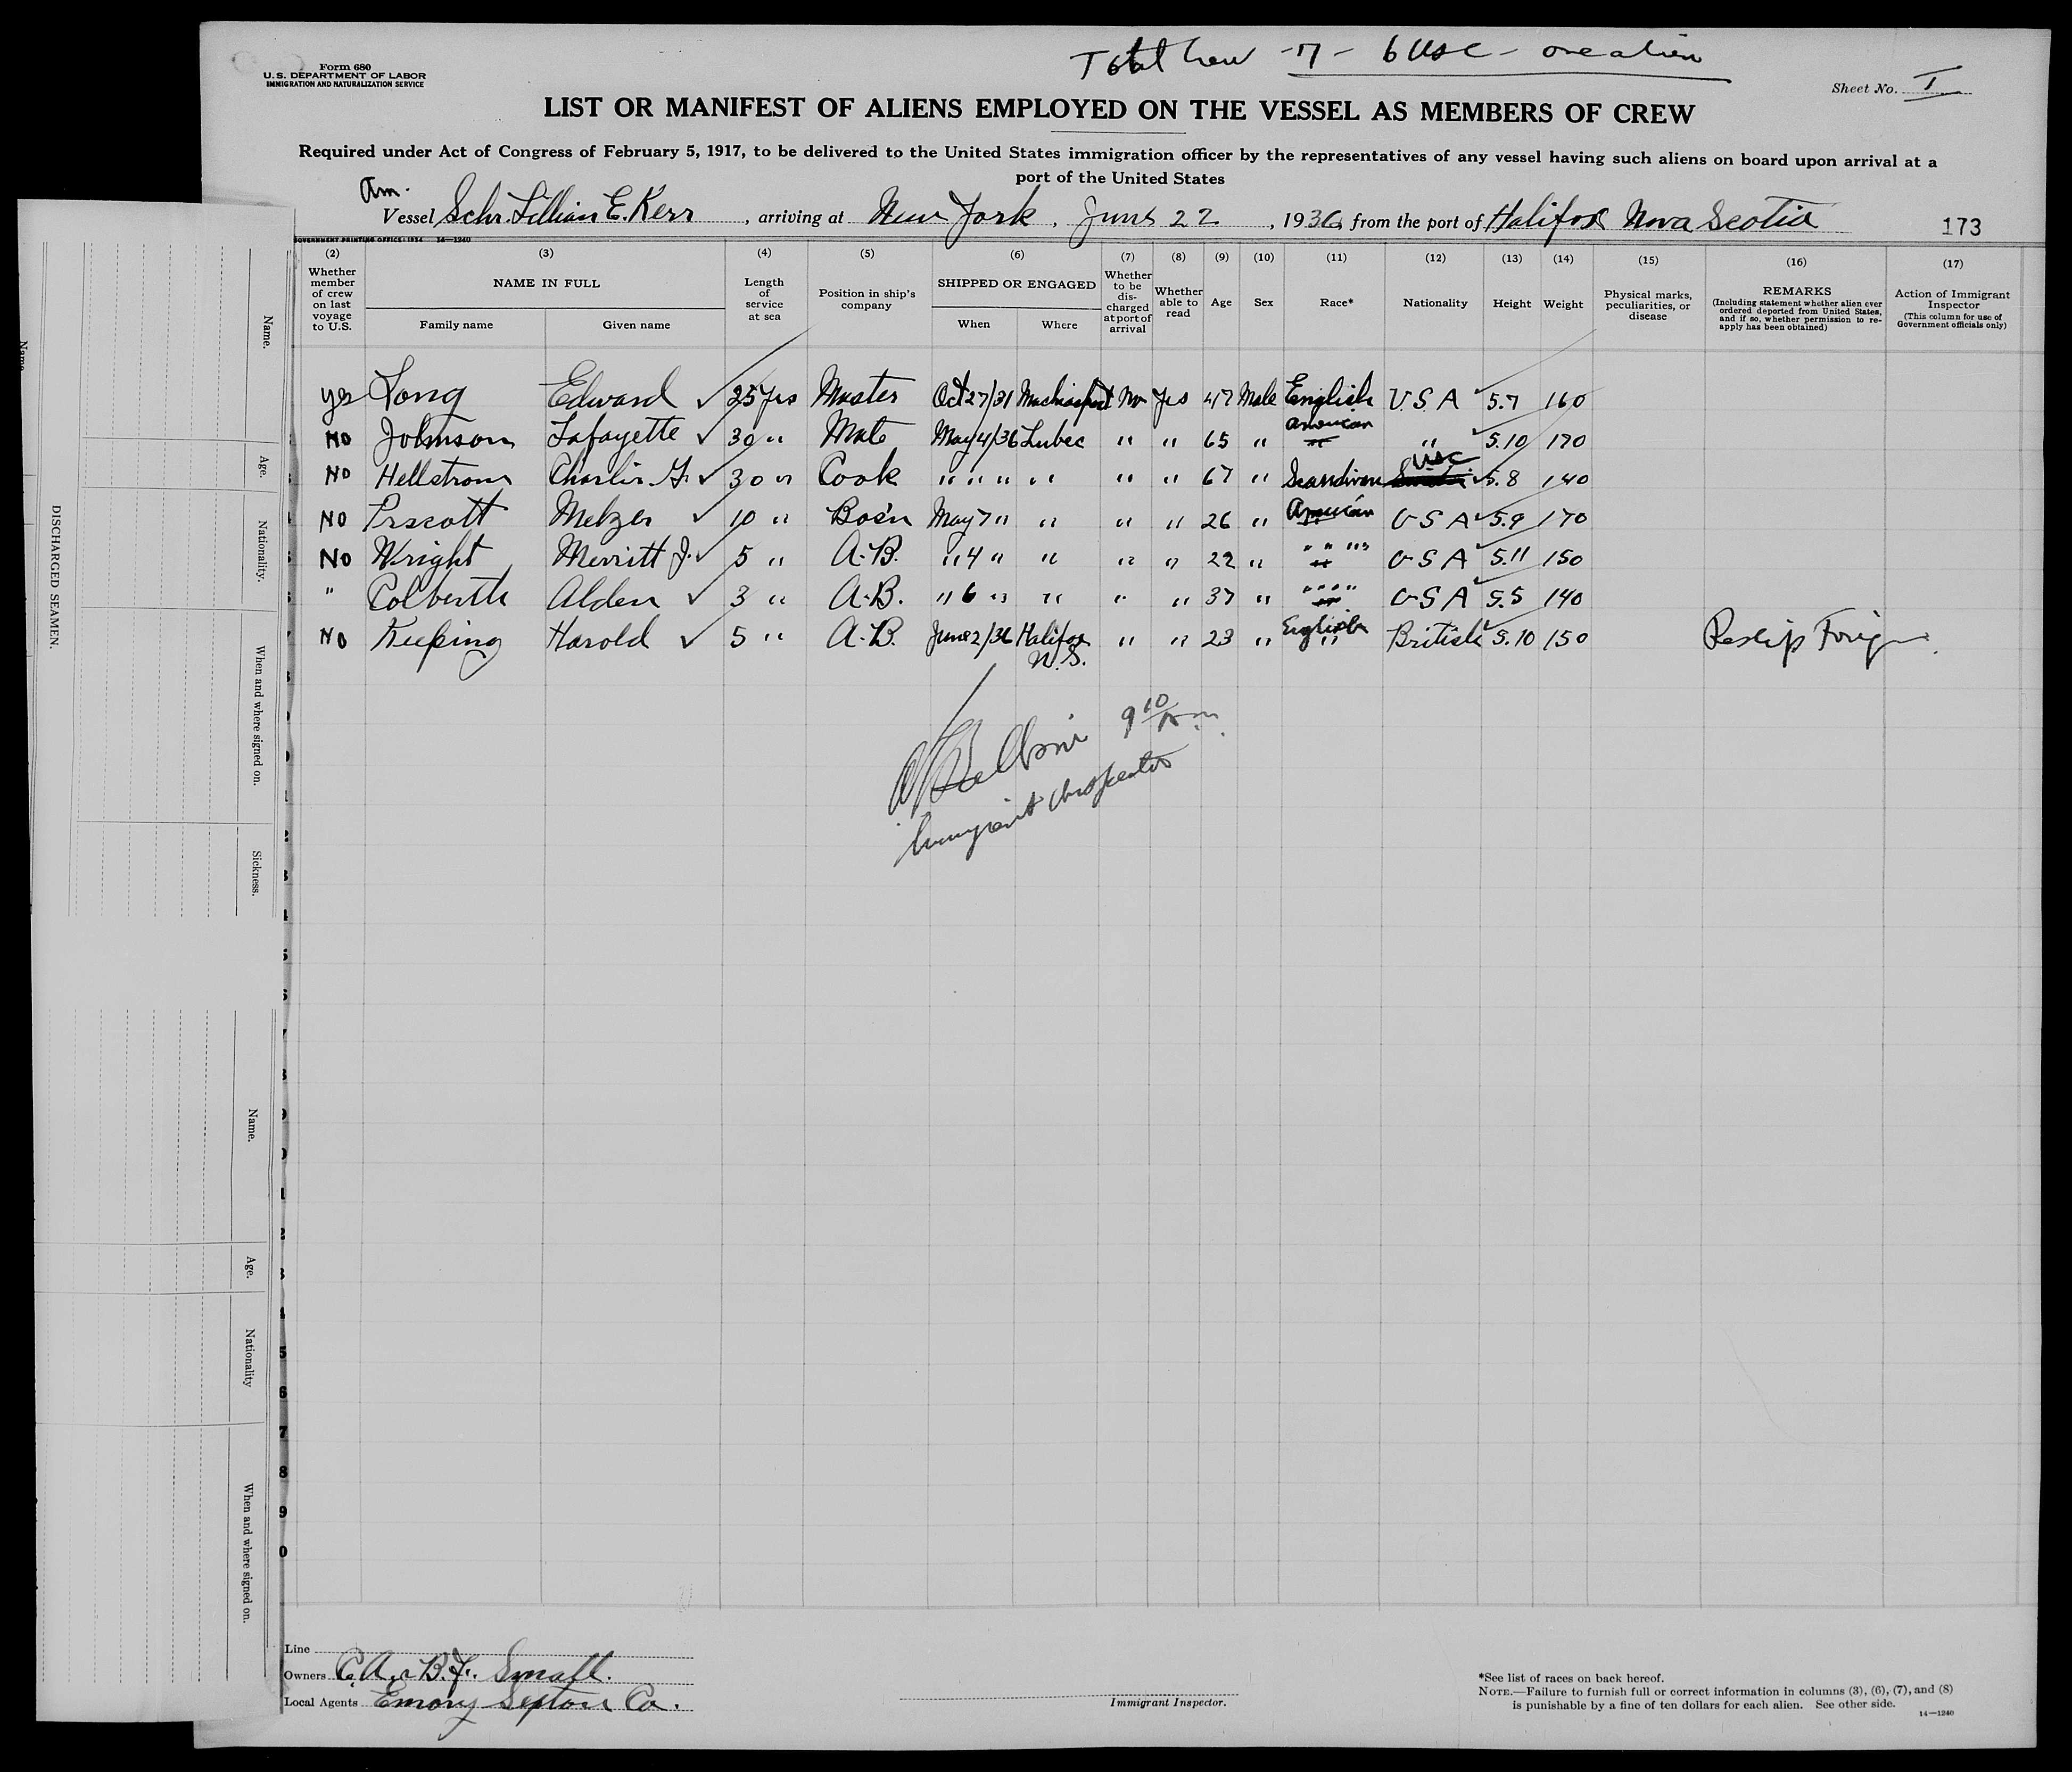 Total Crew -7- 6 USC - one alien
Form 680
U.S. DEPARTMENT OF LABOR
IMMIGRATION AND NATURALIZATION SERVICE
Sheet No. I
LIST OR MANIFEST OF ALIENS EMPLOYED ON THE VESSEL AS MEMBERS OF CREW
Required under Act of Congress of February 5, 1917, to be delivered to the United States immigration officer by the representatives of any vessel having such aliens on board upon arrival at a
port of the United States
Am.
Vessel Schr. Lillian E. Kerr, arriving at New York, June 22, 1936, from the port of Halifax Nova Scotia
173
GOVERNMENT PRINTING OFFICE: 1934 14—1240
(2) (3) (4) (5) (6) (7) (8) (9) (10) (11) (12) (13) (14) (15) (16) (17)
Whether member of crew on last voyage to U.S.
NAME IN FULL
Family name
Given name
Length of service at sea
Position in ship's company
SHIPPED OR ENGAGED
When
Where
Whether to be discharged at port of arrival
Whether able to read
Age
Sex
Race*
Nationality
Height
Weight
Physical marks, peculiarities, or disease
REMARKS
(Including statement whether alien ever ordered deported from United States, and if so, whether permission to reapply has been obtained)
Action of Immigrant Inspector
(This column for use of Government officials only)
yes Long Edward ✓ 25 yrs Master Oct 27/31 Machiasport No Yes 47 Male English U.S.A ✓ 5.7 160
No Johnson Lafayette ✓ 30 " Mate May 4/36 Lubec " " 65 " American " ✓ 5.10 170
No Hellstrom Charlie G. ✓ 30 " Cook " " " " " " 67 " Scandivian USC ✓ 5.8 140
No Prscott Melzer ✓ 10 " Bos'n May 7 " " " " 26 " American U S A ✓ 5.9 170
No Wright Merritt J. ✓ 5 " A.B. " 4 " " " " 22 " " " " " U S A ✓ 5.11 150
" Colberth Alden ✓ 3 " A.B. " 6 " " " " 37 " " " " " U S A ✓ 5.5 140
No Keeping Harold ✓ 5 " A.B. June 2/36 Halifax N.S. " " 23 " English " British ✓ 5.10 150 Reship Foreign
9 10 Am
Immigrant Inspector
DISCHARGED SEAMEN.
Name.
Age.
Nationality.
When and where signed on.
Sickness.
Name.
Age.
Nationality
When and where signed on.
Line
Owners C. A. & B. F. Small.
Local Agents Emory Sexton Co.
Immigrant Inspector.
*See list of races on back hereof.
NOTE.—Failure to furnish full or correct information in columns (3), (6), (7), and (8)
is punishable by a fine of ten dollars for each alien. See other side.
14—1240